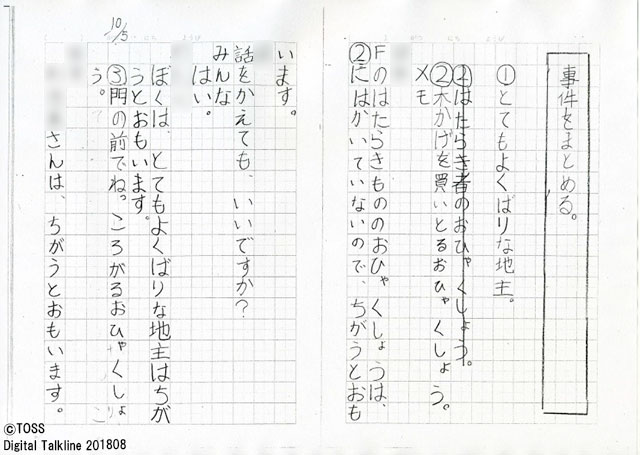 事件をまとめる。
①とてもよくばりな地主。
②はたらき者のおひゃくしょう。
②木かげを買いとるおひゃくしょう。
メモ
Fのはたらきもののおひゃくしょうは、
②にはかいていないので、ちがうとおも
います。
話をかえても、いいですか?
みんな
はい。
ぼくは、とてもよくばりな地主はちが
うとおもいます。
10/5
③門の前でね。ころがるおひゃくしょ
う。
さんは、ちがうとおもいます。
©TOSS
Digital Talkline 201808